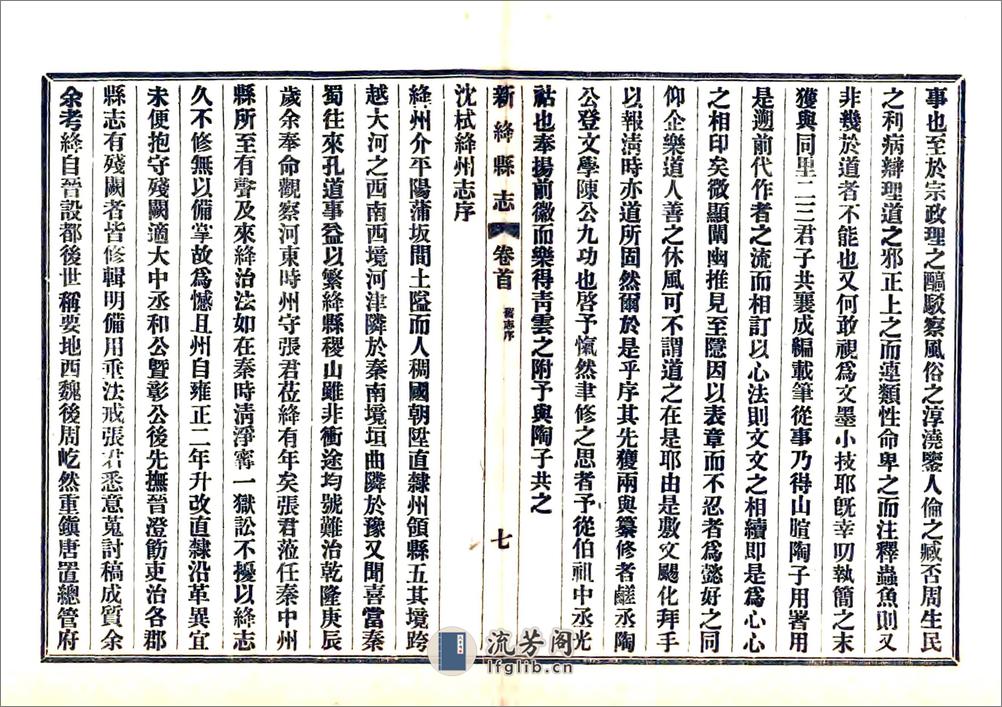 事也至於宗政理之醨駁察風俗之淳澆鑒人倫之臧否周生民
之利病辯理道之邪正上之而連類性命卑之而注釋蟲魚則又
非幾於道者不能也又何敢視為文墨小技耶旣幸叨執簡之末
獲與同里二三君子共襄成編載筆從事乃得山暄陶子用署用
是遡前代作者之流而相訂以心法則文文之相續即是為心心
之相印矣微顯闡幽推見至隱因以表章而不忍者為懿好之同
仰企樂道人善之休風可不謂道之在是耶由是敷文颺化拜手
以報淸時亦道所固然爾於是乎序其先獲兩與纂修者鹺丞陶
公登文學陳公九功也啓予愾然聿修之思者予從伯祖中丞光
祜也奉揚前徽而樂得靑雲之附予與陶子共之
新絳縣志
卷首
舊志序
七
沈栻絳州志序
絳州介平陽蒲坂間土隘而人稠國朝陞直隸州領縣五其境跨
越大河之西南西境河津隣於秦南境垣曲隣於豫又聞喜當秦
蜀往來孔道事益以繁絳縣稷山雖非衝途均號難治乾隆庚辰
歲余奉命觀察河東時州守張君莅絳有年矣張君蒞任秦中州
縣所至有聲及來絳治法如在秦時淸淨寗一獄訟不擾以絳志
久不修無以備掌故為憾且州自雍正二年升改直隸沿革異宜
未便抱守殘闕適大中丞和公暨彰公後先撫晉澄飭吏治各郡
縣志有殘闕者皆修輯明備用垂法戒張君悉意蒐討稿成質余
余考絳自晉設都後世稱要地西魏後周屹然重鎭唐置總管府
流芳閣
lfglib.cn